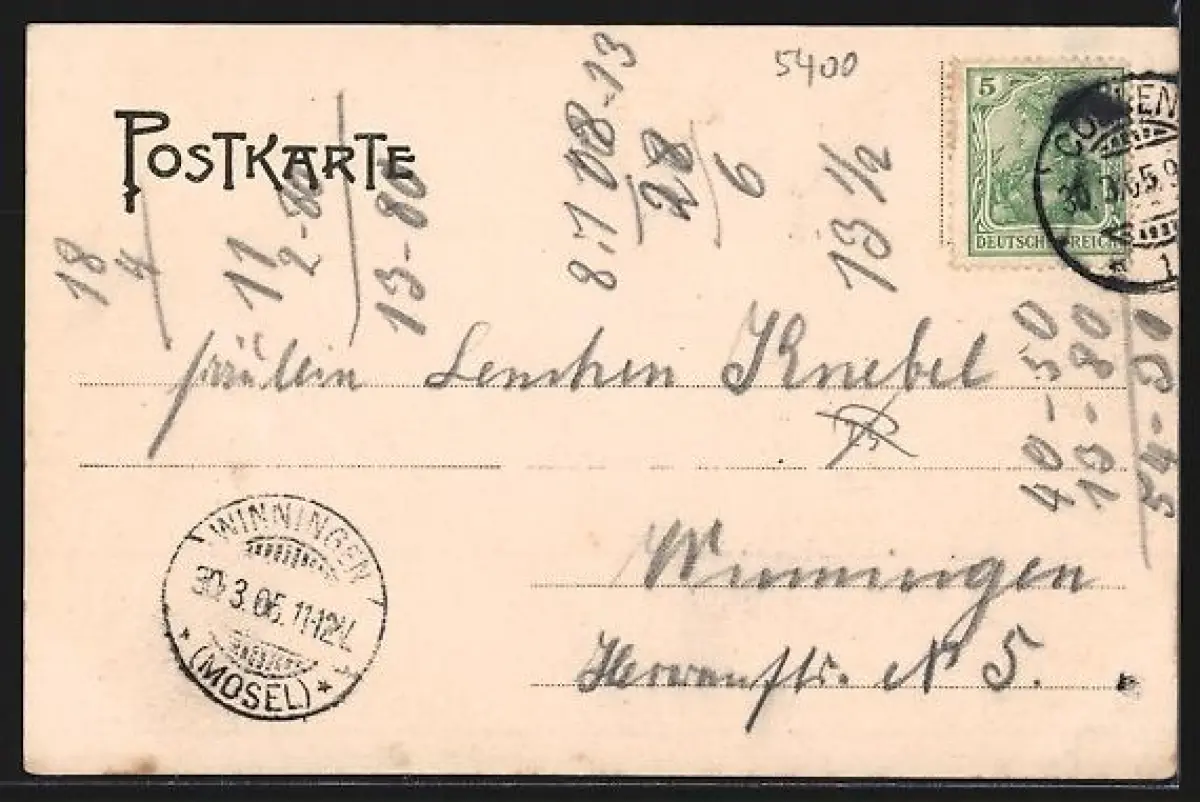 5400
POSTKARTE
5
DEUTSCHES REICH
30.3.05.9
1
18
4
11
2-80
13-80
8.7 08-13
28
6
13 1/2
40-50
13-80
54-30
Fräulein Lenchen Knebel
Winningen
N 5.
WINNINGEN
30.3.05. 11-12V.
(MOSEL)